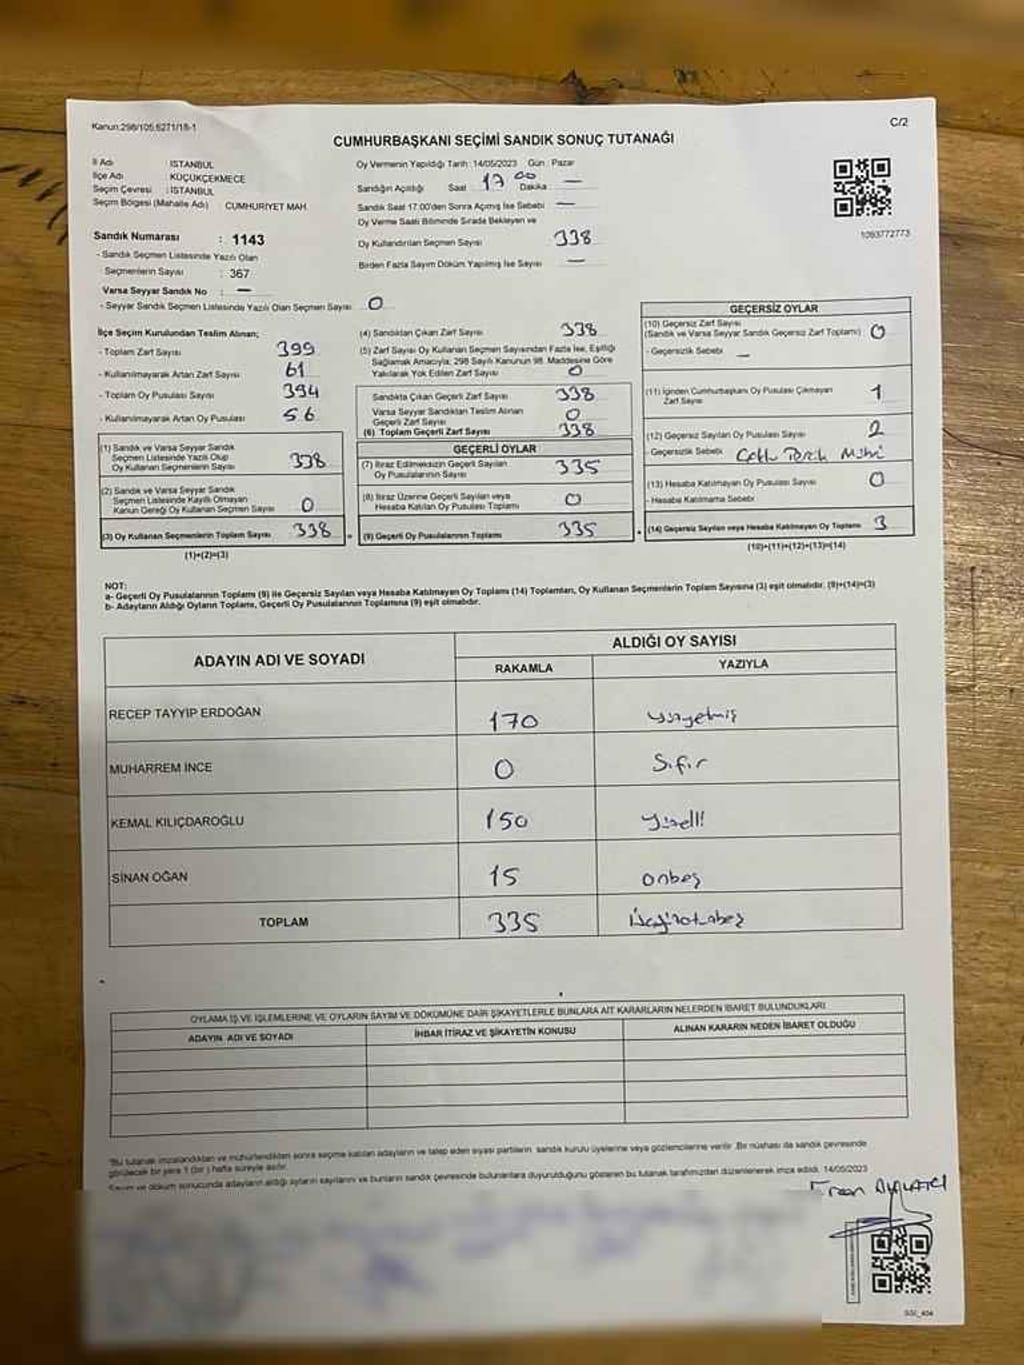 Kanun:298/105,6271/18-1
C/2
CUMHURBAŞKANI SEÇİMİ SANDIK SONUÇ TUTANAĞI
İl Adı : İSTANBUL
İlçe Adı : KÜÇÜKÇEKMECE
Seçim Çevresi : İSTANBUL
Seçim Bölgesi (Mahalle Adı) CUMHURİYET MAH.
Sandık Numarası : 1143
- Sandık Seçmen Listesinde Yazılı Olan
Seçmenlerin Sayısı : 367
Varsa Seyyar Sandık No : —
- Seyyar Sandık Seçmen Listesinde Yazılı Olan Seçmen Sayısı : 0
Oy Vermenin Yapıldığı Tarih : 14/05/2023 Gün : Pazar
Sandığın Açıldığı Saat 17 00 Dakika —
Sandık Saat 17:00'den Sonra Açılmış İse Sebebi —
Oy Verme Saati Bitiminde Sırada Bekleyen ve
Oy Kullandırılan Seçmen Sayısı 338
Birden Fazla Sayım Döküm Yapılmış İse Sayısı —
1093772773
İlçe Seçim Kurulundan Teslim Alınan;
- Toplam Zarf Sayısı 399
- Kullanılmayarak Artan Zarf Sayısı 61
- Toplam Oy Pusulası Sayısı 394
- Kullanılmayarak Artan Oy Pusulası 56
(1) Sandık ve Varsa Seyyar Sandık
Seçmen Listesinde Yazılı Olup
Oy Kullanan Seçmenlerin Sayısı 338
(2) Sandık ve Varsa Seyyar Sandık
Seçmen Listesinde Kayıtlı Olmayan
Kanun Gereği Oy Kullanan Seçmen Sayısı 0
(3) Oy Kullanan Seçmenlerin Toplam Sayısı 338
(1)+(2)=(3)
(4) Sandıktan Çıkan Zarf Sayısı 338
(5) Zarf Sayısı Oy Kullanan Seçmen Sayısından Fazla İse, Eşitliği
Sağlamak Amacıyla; 298 Sayılı Kanunun 98. Maddesine Göre
Yakılarak Yok Edilen Zarf Sayısı 0
Sandıkta Çıkan Geçerli Zarf Sayısı 338
Varsa Seyyar Sandıktan Teslim Alınan
Geçerli Zarf Sayısı 0
(6) Toplam Geçerli Zarf Sayısı 338
GEÇERLİ OYLAR
(7) İtiraz Edilmeksizin Geçerli Sayılan
Oy Pusulasının Sayısı 335
(8) İtiraz Üzerine Geçerli Sayılan veya
Hesaba Katılan Oy Pusulası Toplamı 0
(9) Geçerli Oy Pusulalarının Toplamı 335
GEÇERSİZ OYLAR
(10) Geçersiz Zarf Sayısı
(Sandık ve Varsa Seyyar Sandık Geçersiz Zarf Toplamı) 0
- Geçersizlik Sebebi —
(11) İçinden Cumhurbaşkanı Oy Pusulası Çıkmayan
Zarf Sayısı 1
(12) Geçersiz Sayılan Oy Pusulası Sayısı 2
- Geçersizlik Sebebi
(13) Hesaba Katılmayan Oy Pusulası Sayısı 0
- Hesaba Katılmama Sebebi
(14) Geçersiz Sayılan veya Hesaba Katılmayan Oy Toplamı 3
(10)+(11)+(12)+(13)=(14)
NOT:
a- Geçerli Oy Pusulalarının Toplamı (9) ile Geçersiz Sayılan veya Hesaba Katılmayan Oy Toplamı (14) Toplamları, Oy Kullanan Seçmenlerin Toplam Sayısına (3) eşit olmalıdır. (9)+(14)=(3)
b- Adayların Aldığı Oyların Toplamı, Geçerli Oy Pusulalarının Toplamına (9) eşit olmalıdır.
ADAYIN ADI VE SOYADI
ALDIĞI OY SAYISI
RAKAMLA YAZIYLA
RECEP TAYYİP ERDOĞAN 170 yüzyetmiş
MUHARREM İNCE 0 Sıfır
KEMAL KILIÇDAROĞLU 150 yüzelli
SİNAN OĞAN 15 onbeş
TOPLAM 335 üçyüzotuzbeş
OYLAMA İŞ VE İŞLEMLERİNE VE OYLARIN SAYIM VE DÖKÜMÜNE DAİR ŞİKAYETLERLE BUNLARA AİT KARARLARIN NELERDEN İBARET BULUNDUKLARI
ADAYIN ADI VE SOYADI İHBAR İTİRAZ VE ŞİKAYETİN KONUSU ALINAN KARARIN NEDEN İBARET OLDUĞU
"Bu tutanak imzalandıktan ve mühürlendikten sonra seçime katılan adayların ve talep eden siyasi partilerin sandık kurulu üyelerine veya gözlemcilerine verilir. Bir nüshası da sandık çevresinde
görülecek bir yere 1 (bir) hafta süreyle asılır.
Sayım ve döküm sonucunda adayların aldığı oyların sayılarını ve bunların sandık çevresinde bulunanlara duyurulduğunu gösteren bu tutanak tarafımızdan düzenlenerek imza edildi. 14/05/2023